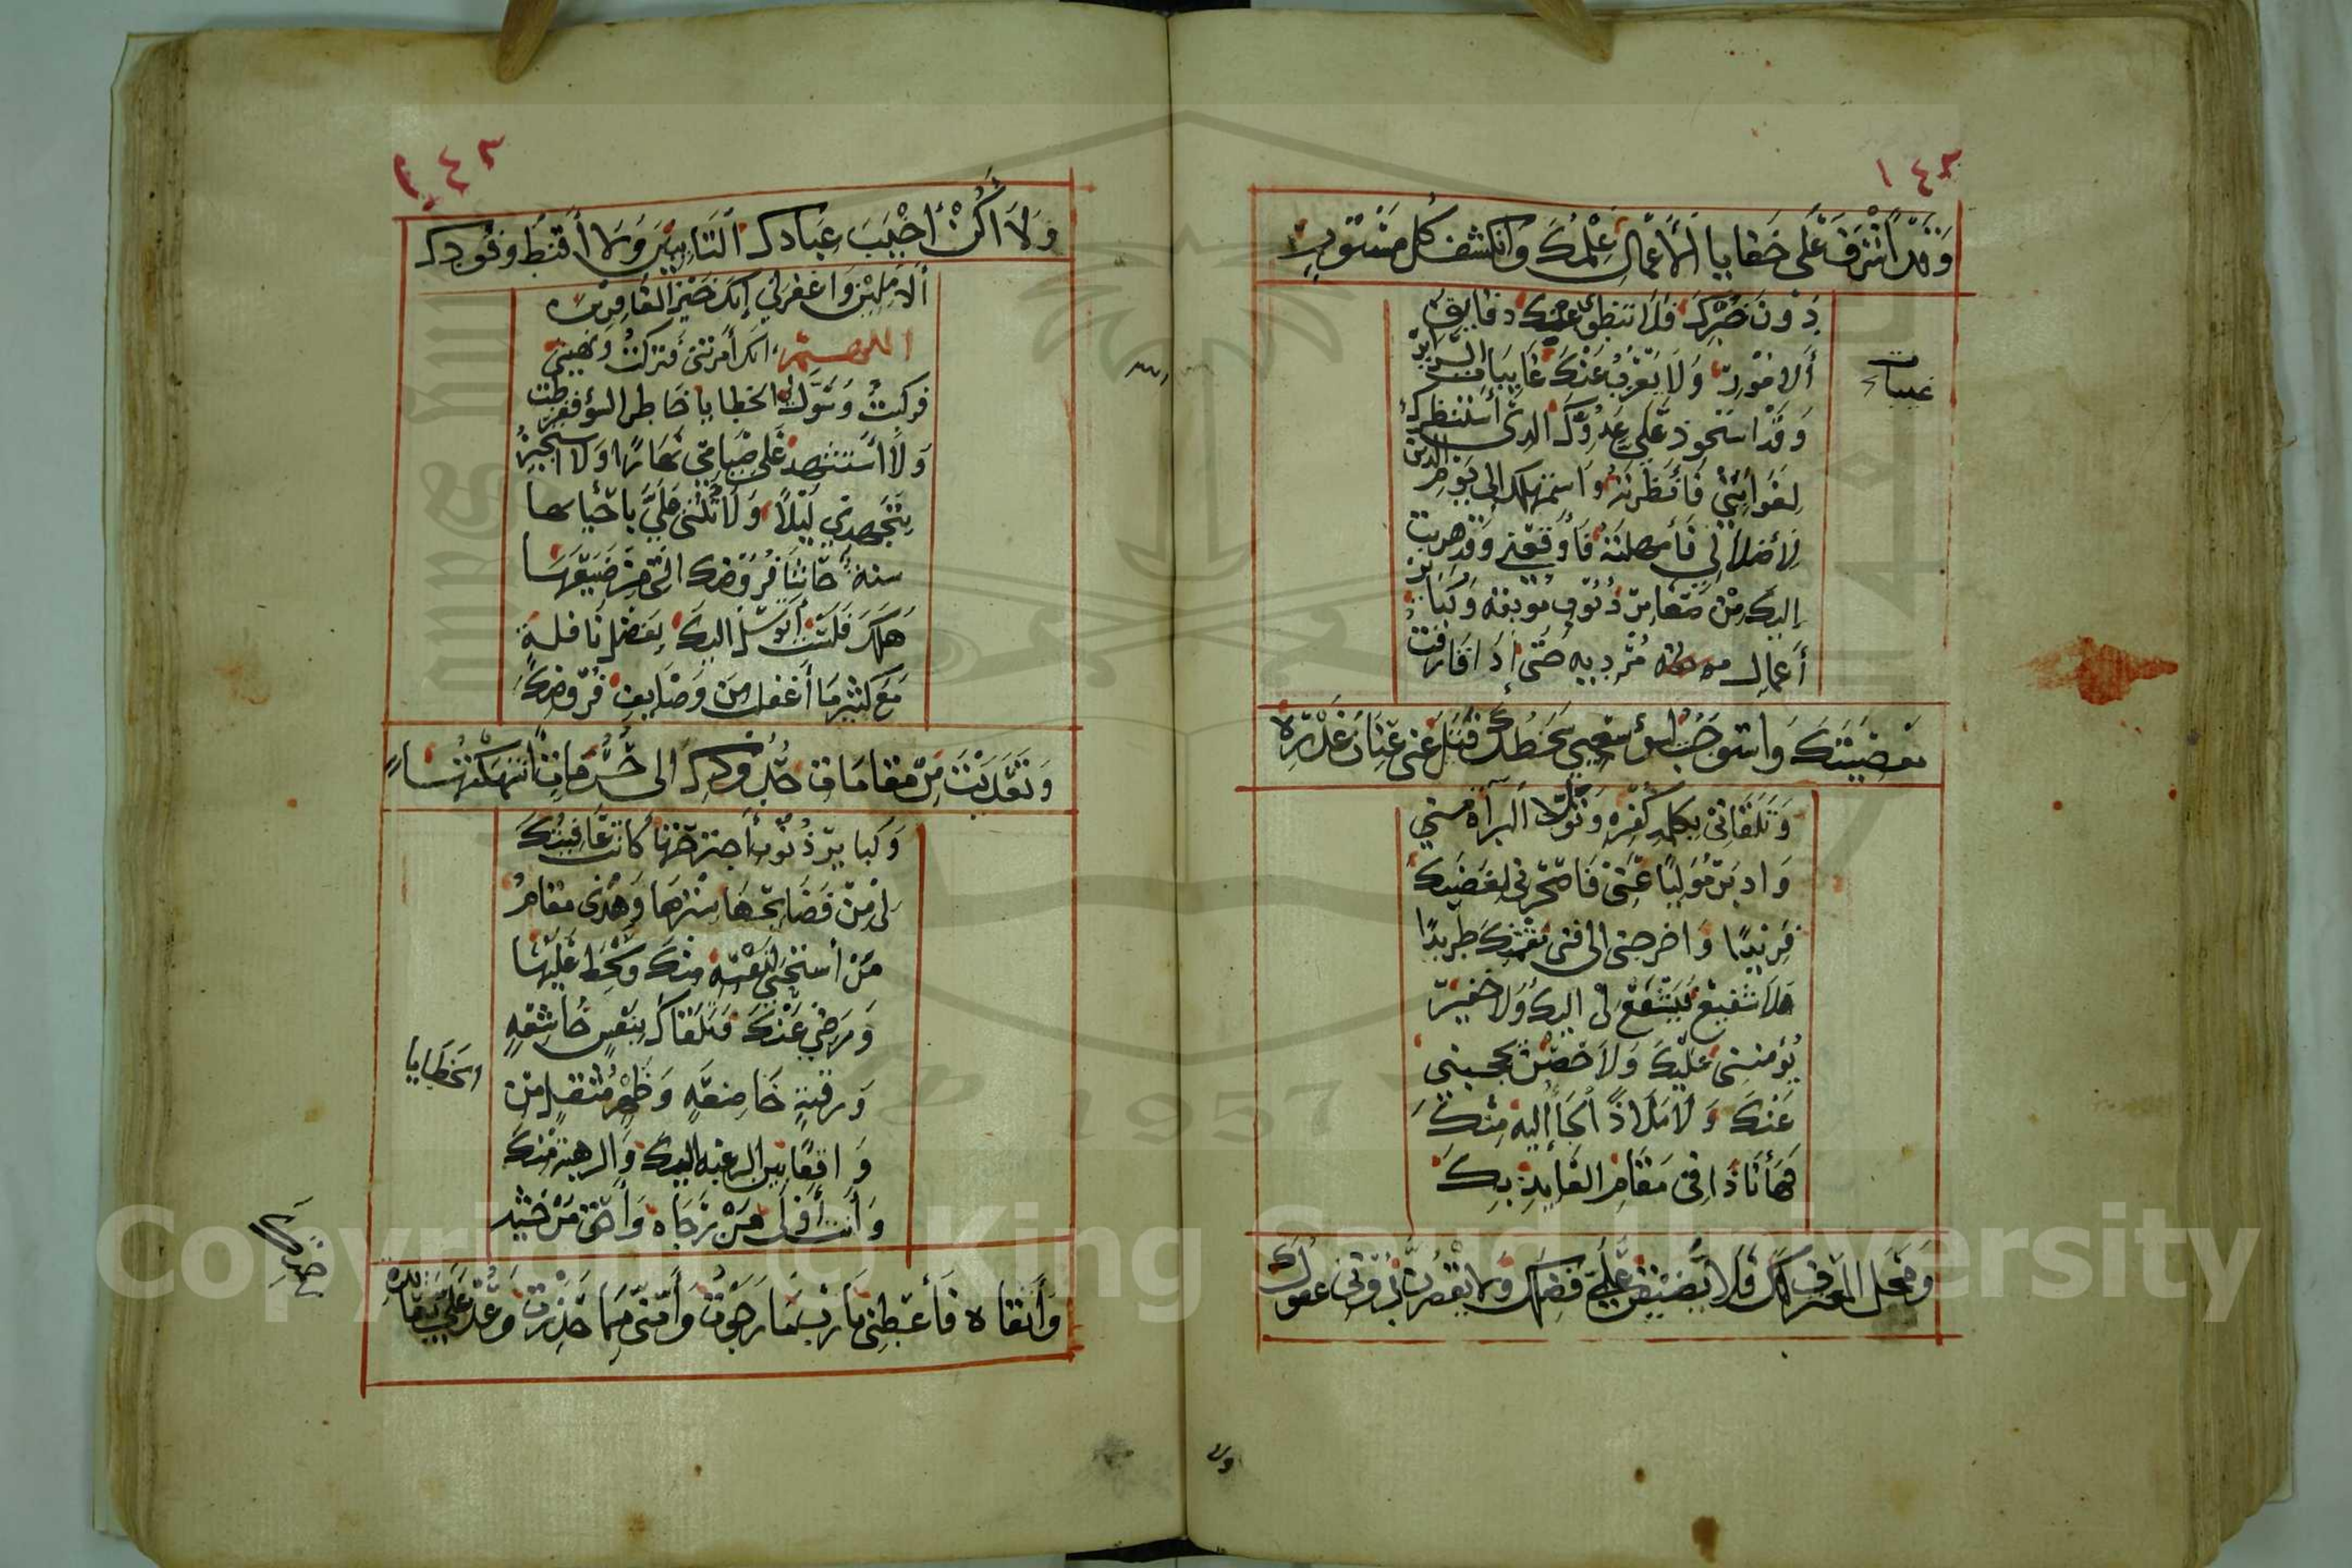 ١٤٢
وَقَدْ اَشْرَفَ عَلَى خَفَايا اَلأَعْمَالِ عِلْمُكَ وَانكشف كُل مَسْتُورٍ
دُونَ خُبْرِكَ فَلَا تنطوى عنك دقايق
اَلامُورِ وَلَا يَعْزُبُ عَنْكَ غَايِبَات السراير
غيبات
وَقَدْ اسْتَحوذ عَلَى عَدُوّكَ الذى أستنظرك
لِغَوَايَتِيْ فَأَنظَرتَهُ وَاستمهلك الى يَوْمِ الدين
لِأضلالِي فَأمهلتَهُ فَأَوْقَعَنِي وَقَدْ هربت
اليكَ مِنْ صَغَايرَ ذُنُوبٍ موبقه وَكَبَاير
أعمالٍ مُرْدِيه حَتى إذَا قَارَفْت
مَعْصِيَتَكَ وَاستوجَبْتُ بسُوءِ سَعْيِي سَخطَكَ فَتَلَ عَنى عِذَارَ غَدْرِهِ
وَتَلَقَانِى بِكَلمةِ كُفْرِهِ وَتَوَلَّا اَلْبَرَآة مِني
وَادبَرَ مُوَلِيًا عَنّى فَاصْحَرَنِى لِغَضَبِكَ
فَرِيْدًا وَاخرجنى الى فنى نِقْمَتِكَ طَرِيدًا
فلَا شَفِيعٌ يَشْفَعُ لِىْ اليكَ وَلا خفيرٌ
يُؤمننِى عَلَيْكَ وَلَا حَصْنٌ يحجبنِي
عَنْكَ وَلَا مَلَاذٌ اَلْجَأُ إليه مِنْكَ
فَهَأَنَا ذَا فى مَقَامِ العَايِذِ بِكَ
وَمَحَلِ المعترف لَكَ فَلَا يَضِيْقَنَّ عَلَيَّ فَضلكَ وَلا يَقْصُرَنَّ دُوْنِى عفوك
ولا
١٤٣
وَلَا أَكُنْ أَخْيَبَ عِبَادك اَلتَائِبِينَ وَلا أَقنَطَ وفُودِك
اَلآمِلِيْنَ وَاغفرلِي إنكَ خَيْرُ الغَافِرِيْنَ
اللهم انكَ أمَرْتَنِى فَتَركْتُ وَنَهَيْتَنِى
فركبتُ وَسَوَّلَ لى الخطايا خَاطر السُوءِ ففرطت
وَلَا أَسْتَشهدُ عَلَى صِيَامِي نَهَارًا وَلَا استجيرُ
بِتَهجدِى لَيْلًا وَلَا تُثْنى عَلَيَّ بِاحْيَائِها
سنة حَاشَا فُرُوضكَ التى مَنْ ضَيَّعَهَا
هَلَكَ فَلَسْتُ أتوسَّلُ اليكَ بِفَضْلِ نَافلةٍ
مَعَ كَثيرِ مَا أَغفلت مِنَ وَضَايفِ فُرُوضِكَ
وَتَعَدَيْتُ مِنْ مَقامَاتِ حُدُودِكَ الى حُرُمَاتٍ انتهَكْتُهَا
وَكَبايِرِ ذُنُوبٍ أَجترحْتهَا كَانتْ عَافِيَتُكَ
لِى مِنْ فَضَايحِهَا سِتْرًا وَهَذَى مَقَامُ
مَنْ أستحيى لِنَفْسِهِ مِنكَ وَسَخِطَ عَلَيْهَا
وَرَضِيَ عَنْكَ فَتَلَقَاكَ بِنَفْسٍ خَاشِعَةٍ
وَرقبةٍ خَاضِعَةٍ وَظَهْرٍ مُثْقَلٍ مِنَ
الخطَايَا
وَاقفًا بَين الرغبه اليك وَالرهبة مِنْكَ
وَأنت أَوْلَى مَنْ رَجَاه وَأَحَق مَنْ خشيه
وَاتَقَاه فَأَعطِنى يَا رب مَا رَجَوْتُ وَأَمِنّى مِمَا حَذِرْتُ وَعُدْ عَلَيَّ بِعَائِدة